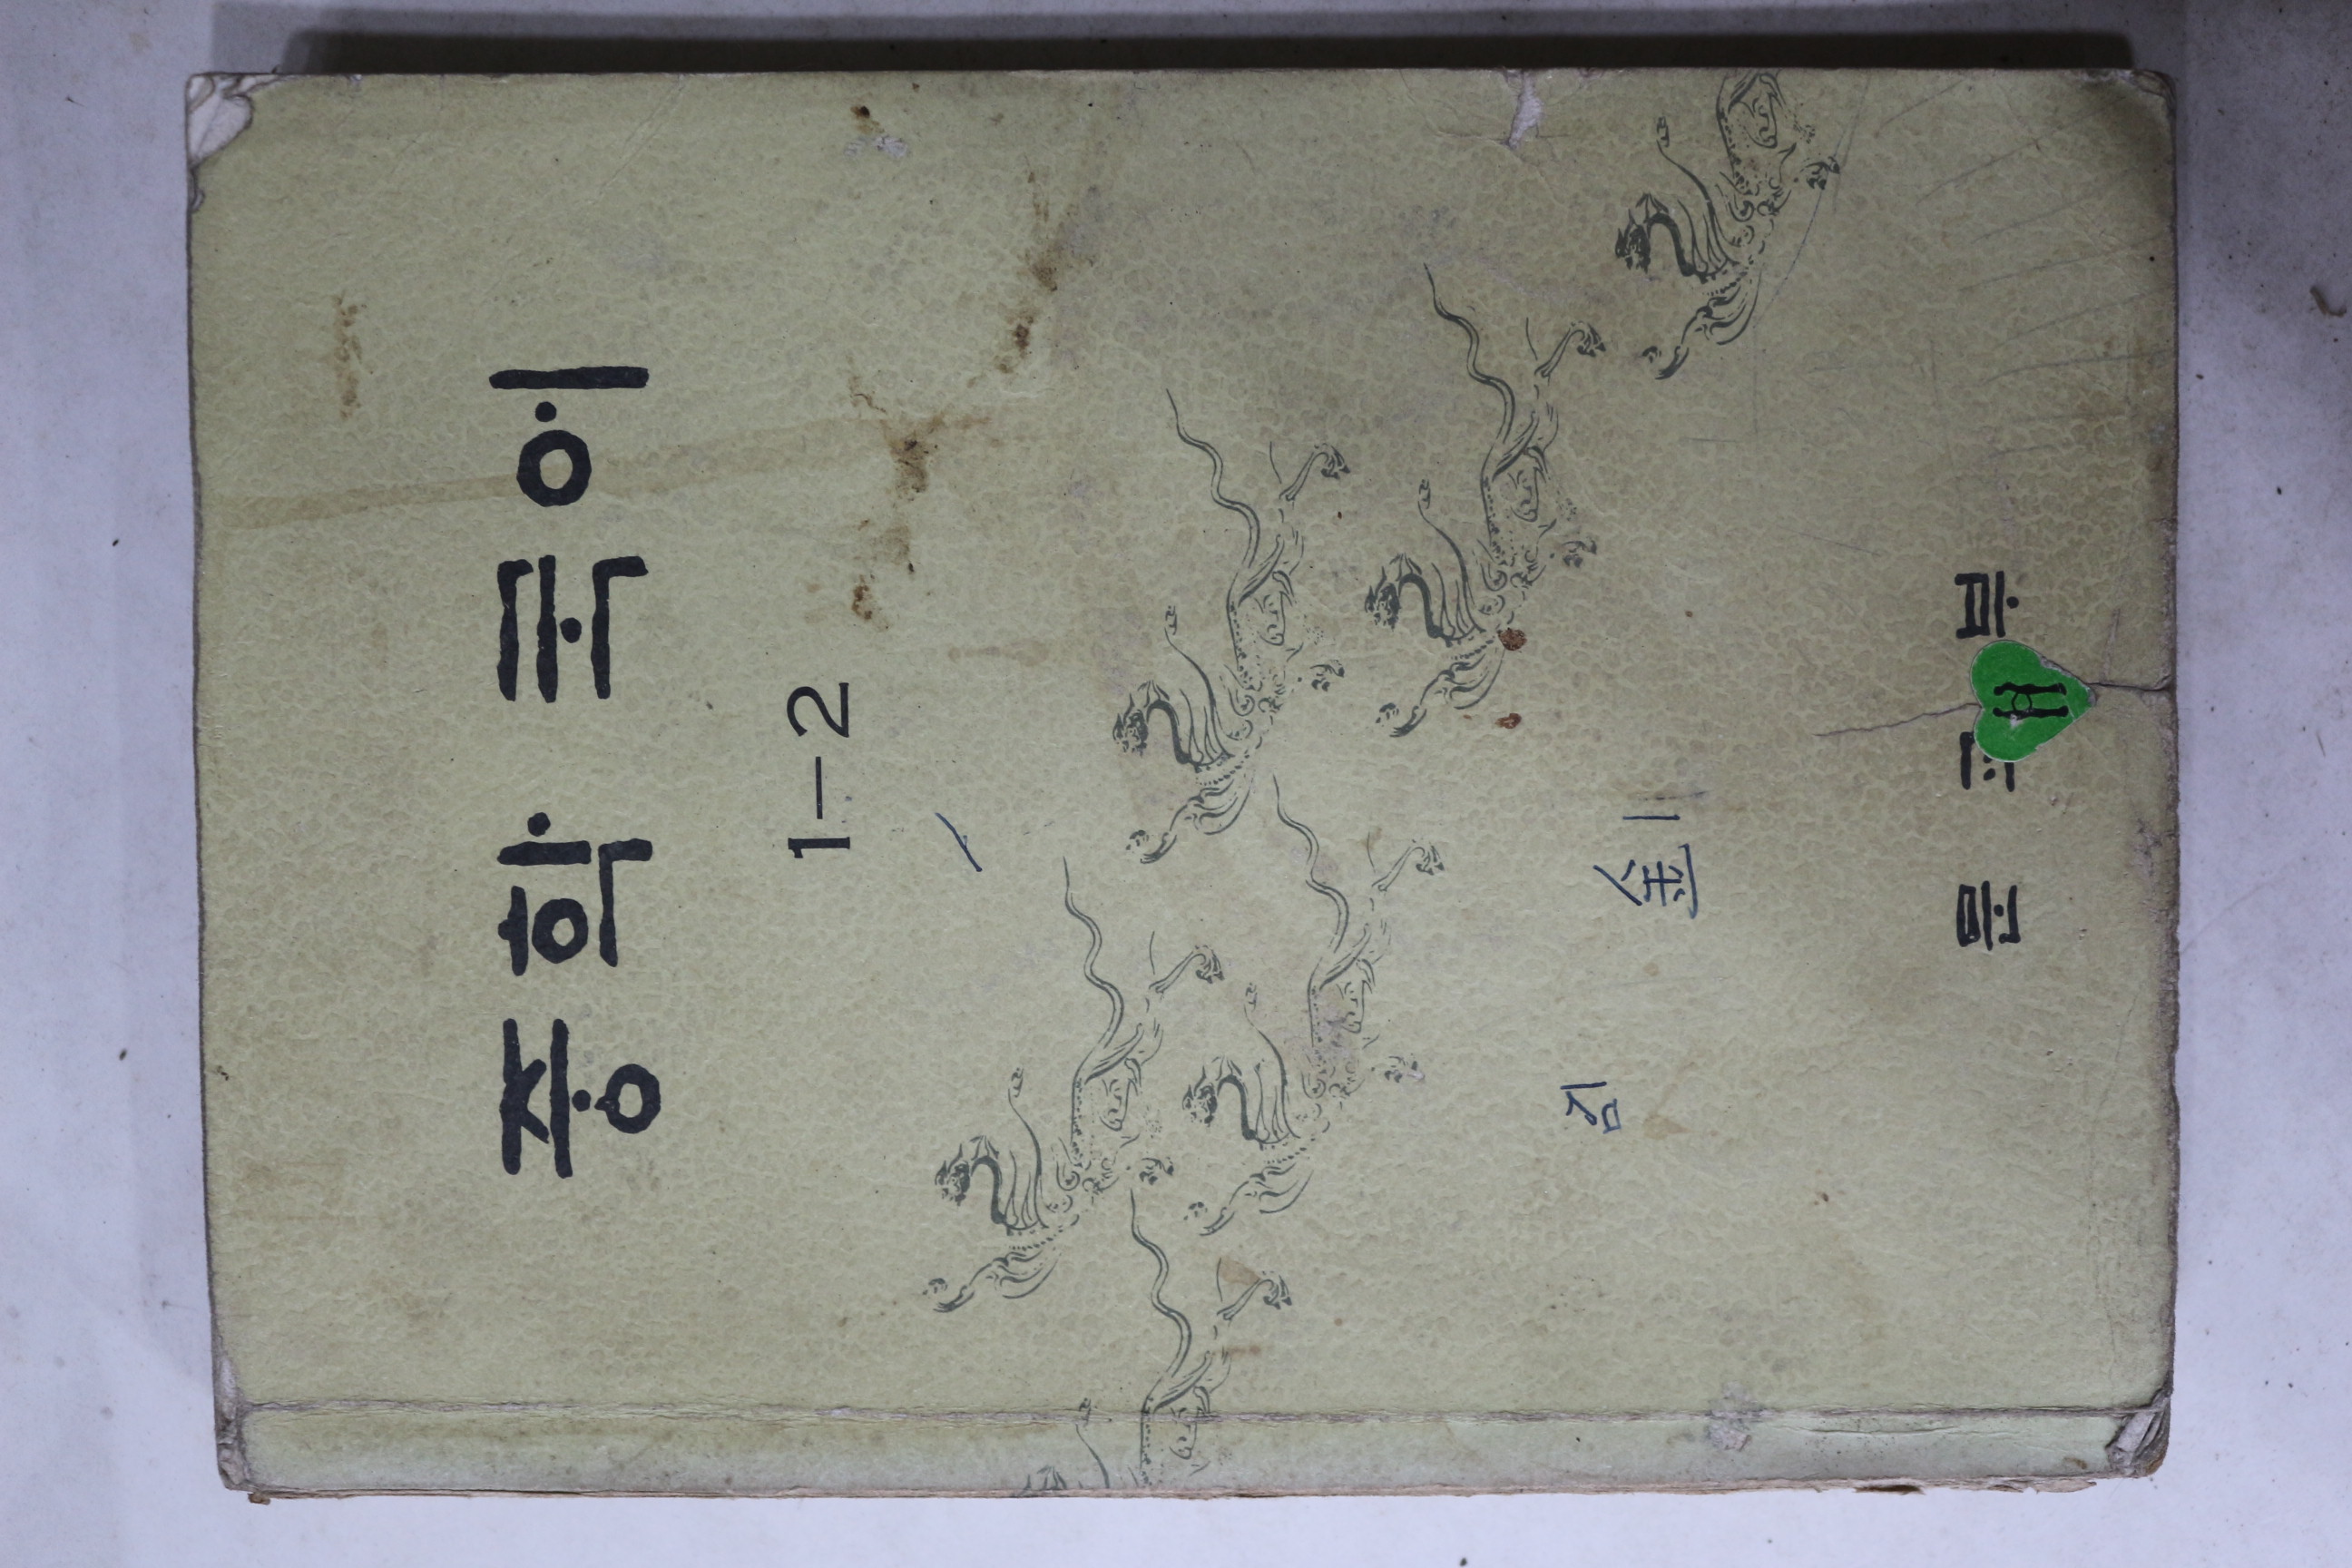 중학 국어
1-2
金
문교부
H